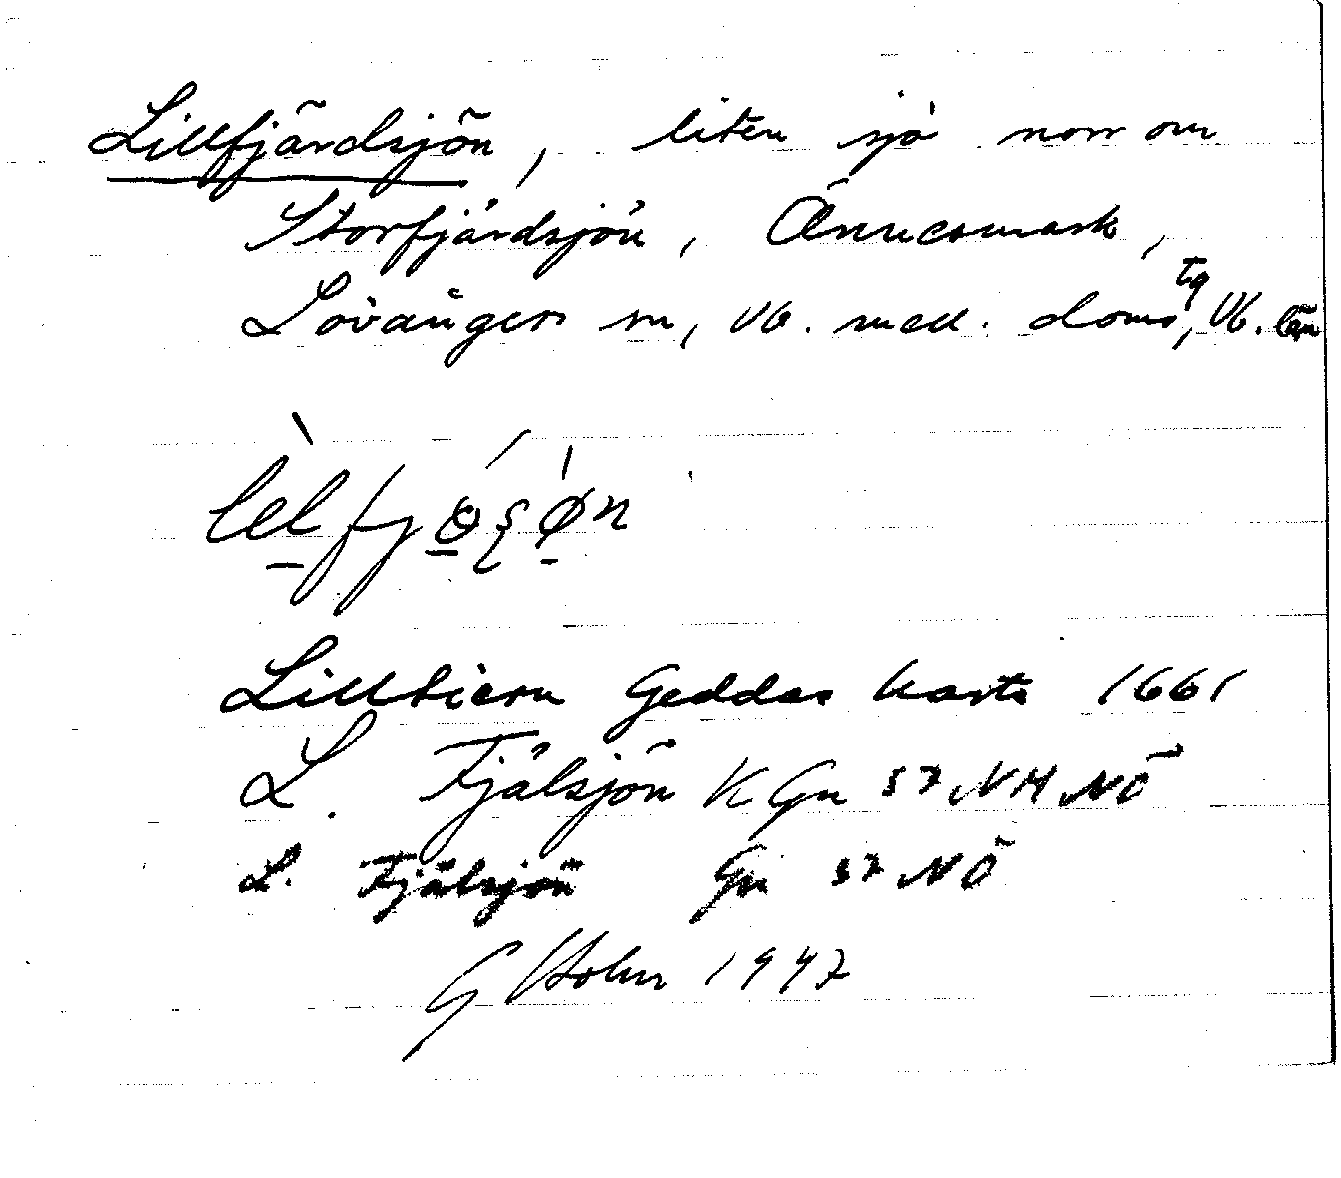 Lillfjärdsjön, liten sjö norr om
Storfjärdsjön, Önnesmark,
Lövånger sn, Vb. mell. doms tg, Vb. län
Lilltiern Geddas karta 1661
L. Fjälsjön K Gn 57 NH NÖ
L. Fjälsjön Gn 57 NÖ
G Holm 1947